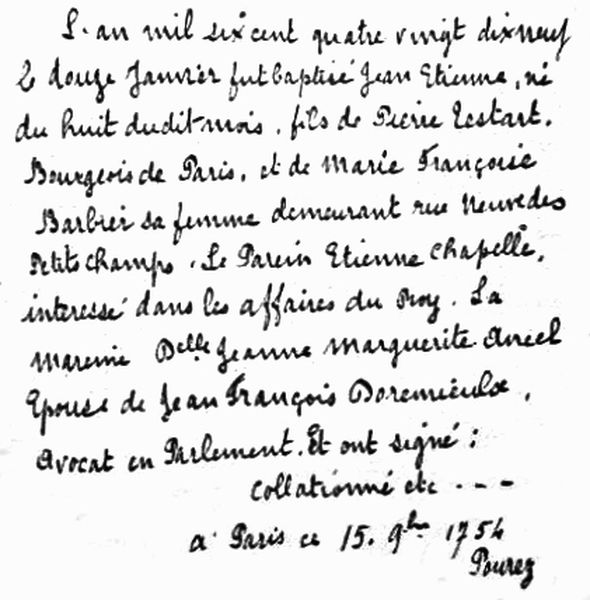 L'an mil six cent quatre vingt dix neuf
le douze Janvier fut baptisé Jean Etienne, né
du huit dudit mois, fils de Pierre Testart,
Bourgeois de Paris, et de Marie Françoise
Barbier sa femme demeurant rue Neuve des
Petits champs. Le Parein Etienne Chapelle,
interessé dans les affaires du Roy. La
Mareine Delle Jeanne Marguerite
Epouse de Jean François
Avocat en Parlement. Et ont signé :
Collationné etc - - -
a Paris ce 15. 9bre 1754